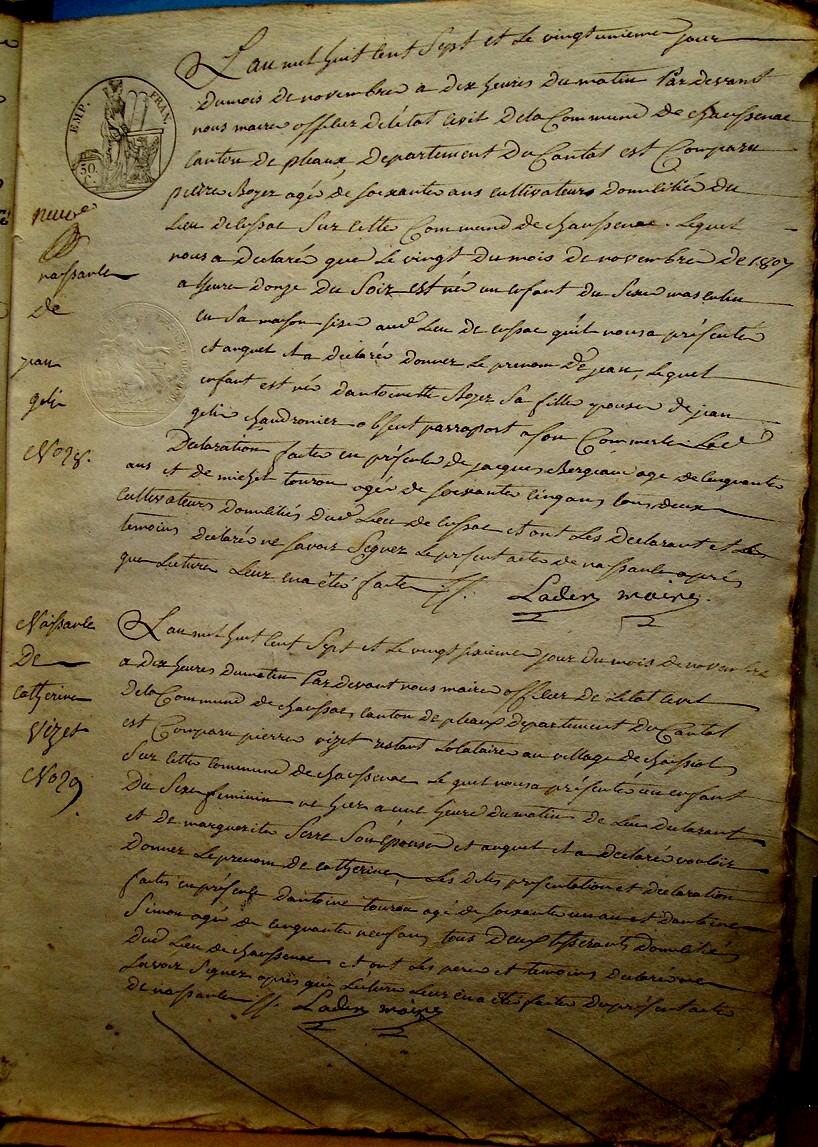 L'an mil huit cent Sept et Le vingt unieme jour
Dumois de novembre a dix heures Du matin Par devant
nous maire officier De l'état civil De la Commune De chaussenac
Canton de pleaux Departement Du Cantal est Comparu
pierre Royer agé de soixante ans cultivateur Domicilié Du
Lieu de cussac Sur cette Commune de chaussenac. Lequel
nous a declaré que Le vingt Du mois de novembre De 1807
a heure donze Du Soir est né un enfant du Sexe masculin
en Sa maison sise aud Lieu de cussac qu'il nous a présenté
et auquel il a declaré donner Le prenom De jean, Lequel
enfant est né d'antoinette Royer Sa fille epouse de jean
gelin chaudronier absent passaport a son Commerce. Lad
Declaration faite en présence de jacques Bergeau age de cinquante
ans et de michel tourou agée de soixante cinq ans tous deux
cultivateurs Domiciliés dud Lieu de cussac et ont Les Declarant et Les
temoins declaré ne savoir Signer Le present acte de naissance après
que Lecture Leur en a été faite //.
Laden maire.
EMP. FRAN.
50. C.
naissance
De
jean
gelin
No 28.
Naissance
De
Catherine
Vizet
No 29
L'an mil huit Cent Sept et Le vingt sixieme jour Du mois de novembre
a dix heures Du matin Par devant nous maire officier De l'état civil
De la Commune de chaussenac canton de pleaux Departement Du Cantal
est Comparu pierre vizet restant Locataire au village de
Sur cette Commune de chaussenac Le quel nous a présenté un enfant
Du Sexe feminin né hier a une heure du matin de Lui declarant
et de marguerite Serre Son épouse et auquel il a declaré vouloir
Donner Le prenom de catherine, Les dites presentation et declaration
faites en présence d'antoine tourou agé de soixante un an et d'antoine
Simon agé de cinquante neuf ans tous Deux tisserants Domiciliés
Dud Lieu de chaussenac et ont Les pere et temoins declaré ne
Savoir Signer après que Lecture Leur en a été faite du présent acte
De naissance //. Laden maire